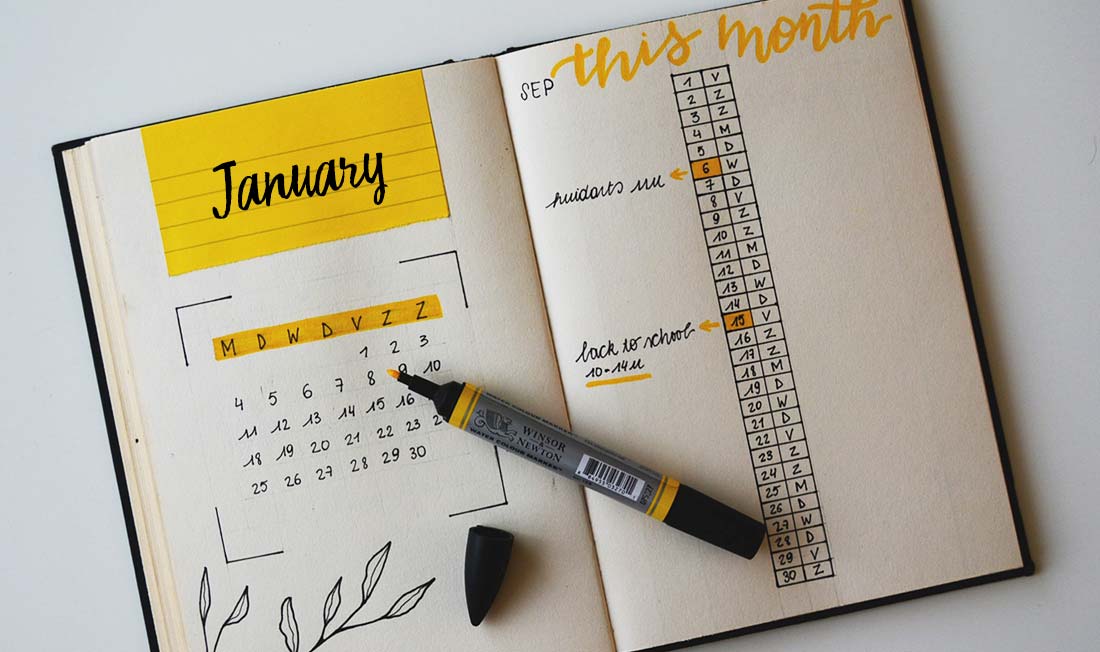 January
M D W D V Z Z
1 2 3
4 5 6 7 8 9 10
11 12 13 14 15 16
18 19 20 21 22 23
25 26 27 28 29 30
WINSOR
& NEWTON
WATER COLOUR MARKER
this month
SEP
1 V
2 Z
3 Z
4 M
5 D
huidarts
6 W
7 D
8 V
9 Z
10 Z
11 M
12 D
13 W
14 D
back to school
10-14u
15 V
16 Z
17 Z
18 M
19 D
20 W
21 D
22 V
23 Z
24 Z
25 M
26 D
27 W
28 D
29 V
30 Z